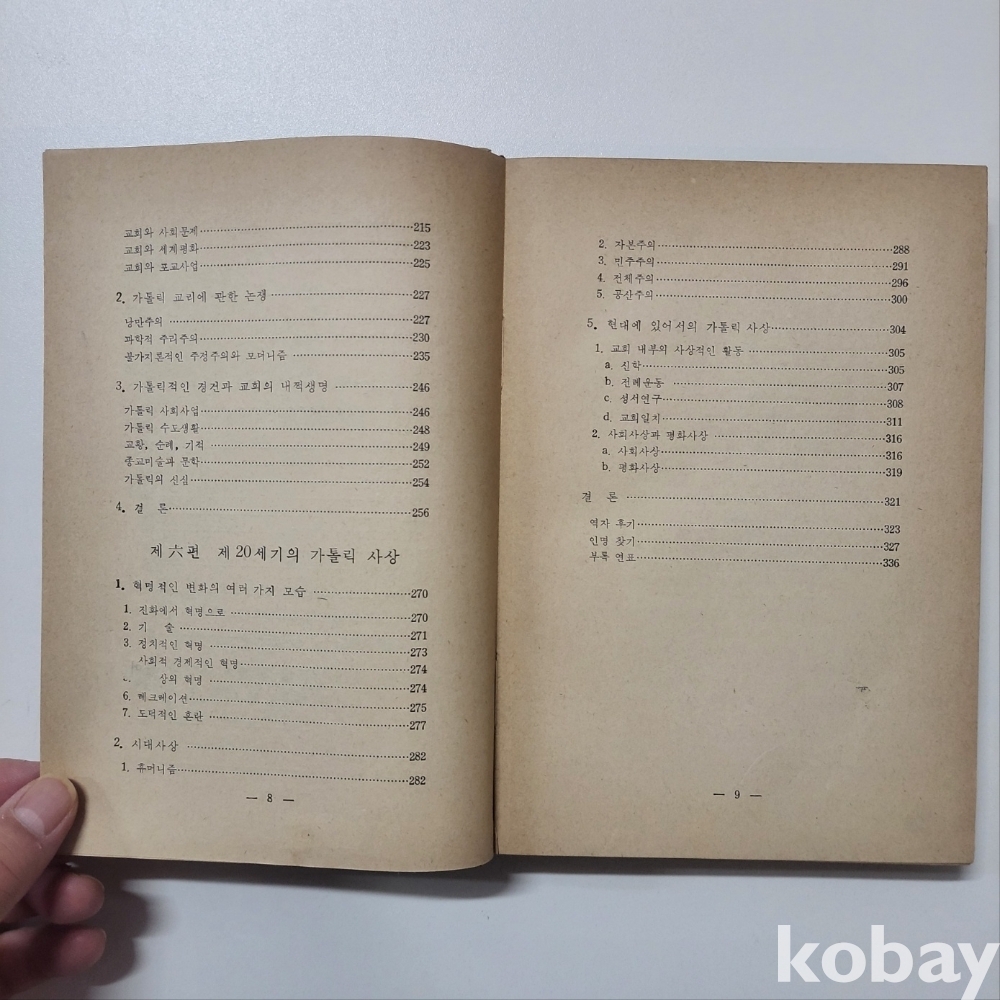 교회와 사회문제……215
교회와 세계평화……223
교회와 포교사업……225
2. 가톨릭 교리에 관한 논쟁……227
낭만주의……227
과학적 주리주의……230
불가지론적인 주정주의와 모더니즘……235
3. 가톨릭적인 경건과 교회의 내적생명……246
가톨릭 사회사업……246
가톨릭 수도생활……248
교황, 순례, 기적……249
종교미술과 문학……252
가톨릭의 신심……254
4. 결 론……256
제六편 제20세기의 가톨릭 사상
1. 혁명적인 변화의 여러 가지 모습……270
1. 진화에서 혁명으로……270
2. 기 술……271
3. 정치적인 혁명……273
사회적 경제적인 혁명……274
상의 혁명……274
6. 레크레이션……275
7. 도덕적인 혼란……277
2. 시대사상……282
1. 휴머니즘……282
— 8 —
2. 자본주의……288
3. 민주주의……291
4. 전체주의……296
5. 공산주의……300
5. 현대에 있어서의 가톨릭 사상……304
1. 교회 내부의 사상적인 활동……305
a. 신학……305
b. 전례운동……307
c. 성서연구……308
d. 교회일치……311
2. 사회사상과 평화사상……316
a. 사회사상……316
b. 평화사상……319
결 론……321
역자 후기……323
인명 찾기……327
부록 연표……336
— 9 —
kobay